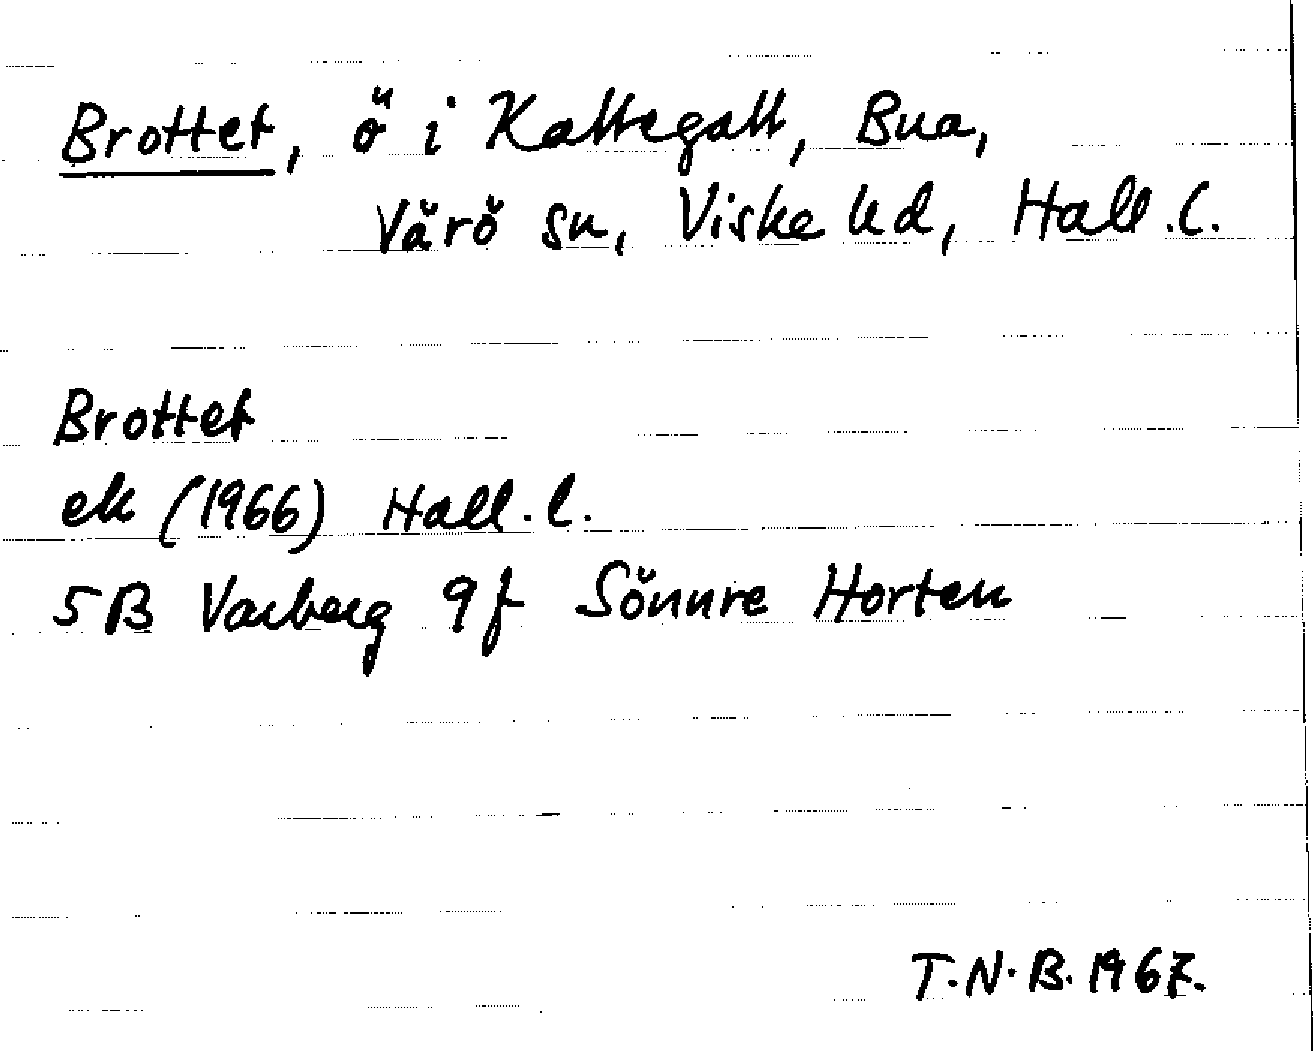 Brottet, ö i Kattegatt, Bua,
Värö sn, Viske hd, Hall.l.
Brottet
ek (1966) Hall.l.
5B Varberg 9f Sönnre Horten
T.N.B. 1967.